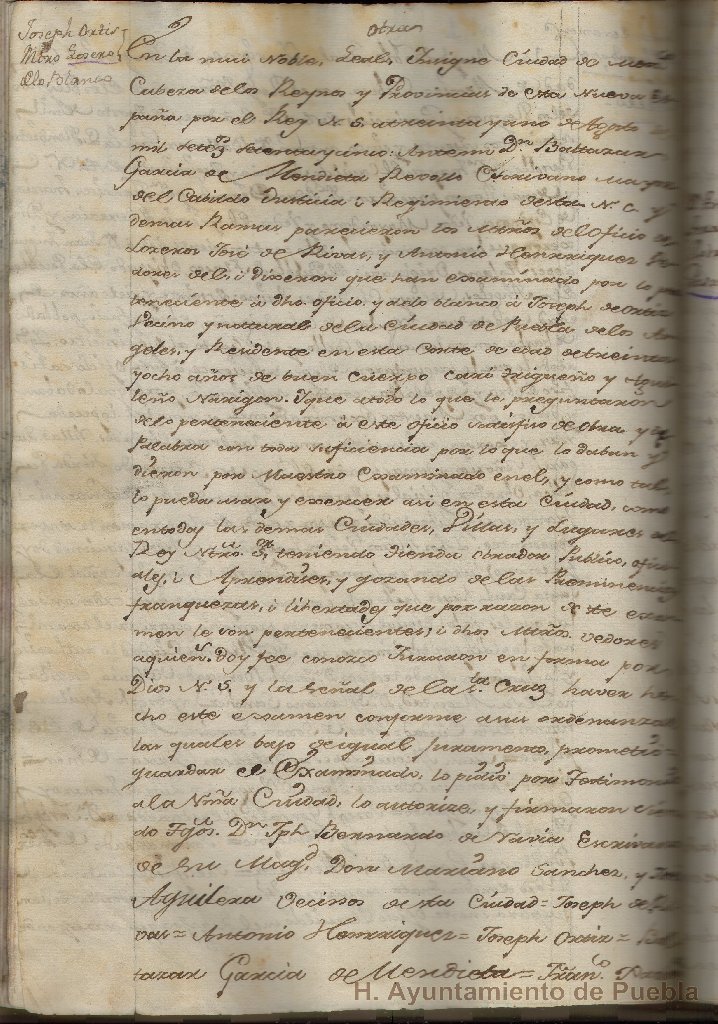 Joseph Ortis
Mtro Losero
de lo blanco
Otra
En la mui Noble, Leal, Insigne Ciudad de Mexco
Cabeza de los Reynos y Provincias de esta Nueva Es
paña por el Rey N. S. a treinta y uno de Agosto de
mil setos setenta y cinco: Antemi Dn Baltazar
Garcia de Mendieta Revollo Escrivano mayor
del Cabildo Justicia i Regimiento de esta N. C. y
demas Ramas parecieron los Mtros del Oficio de
Loseros José de Rivas, y Antonio Henrriquez Ve
dores del, i dixeron que han examinado por lo per
teneciente á dho oficio y de lo blanco á Joseph de Ortiz
Vecino y natural de la Ciudad de Puebla de los An
geles, y Residente en esta Corte de edad de treinta
y ocho años de buen cuerpo cari trigueño y
Narigon. I que a todo lo que le preguntaron
de lo perteneciente á este oficio satisfiso de obra y de
Palabra con toda suficiencia por lo que lo daban y
dieron por Maestro Examinado en el, y como tal
lo pueda usar y exercer asi en esta Ciudad, como
en todas las demas Ciudades, Villas, y Lugares del
Rey Ntro. Sr. teniendo tienda obrador Publico, oficia
les, i Aprendises, y gozando de las Preminencias
franquezas, i libertades que por razon de este exa
men le son pertenecientes; i dhos Mtros. vedores
a quien. doy fee conosco Juraron en forma por
Dios N. S. y la señal de la Sta. Cruz haver he
cho este examen conforme a sus ordenanzas
las quales bajo de igual Juramento, prometió
guardar el Examinado, lo pidió por Testimonio
a la Nma Ciudad, lo autorize y firmaron sien
do Tgos. Dn Jph Bernardo de Navia Escrivano
de Su Magd. Don Mariano Sanchez, y
Aguilera Vecinos de esta Ciudad = Joseph de Ri
vas = Antonio Henrriquez = Joseph Ortiz = Bal
tazar Garcia de Mendieta = Fran.co
H. Ayuntamiento de Puebla